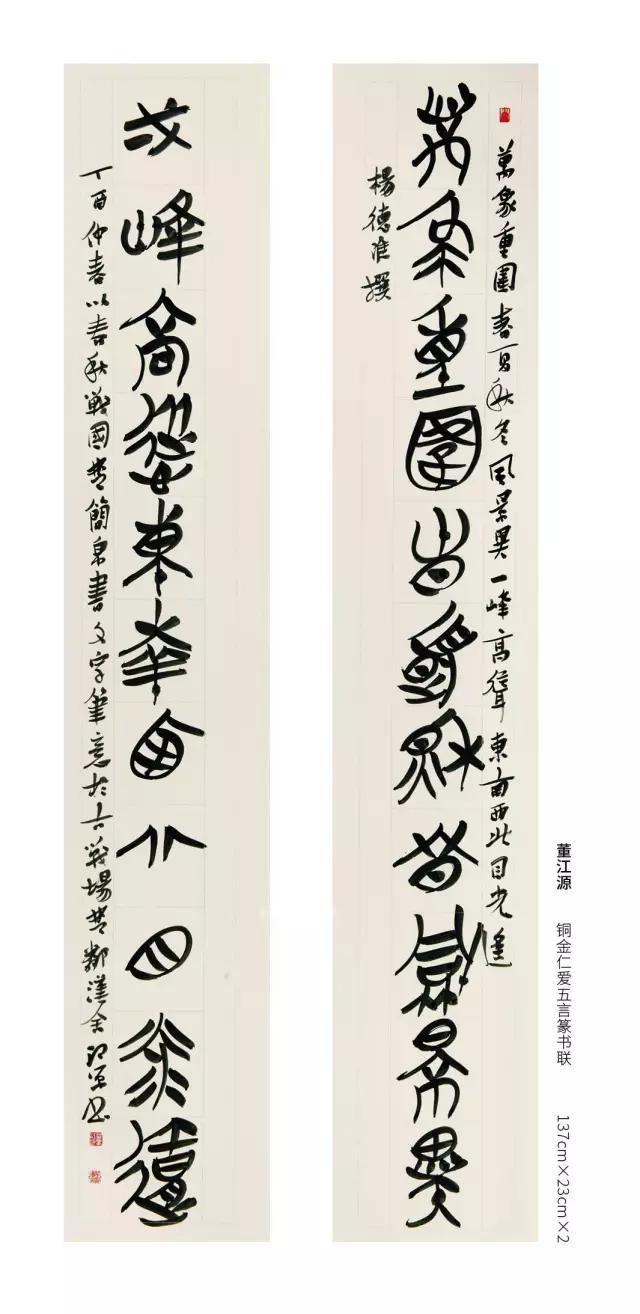 萬象重圍春夏秋冬風景異一峰高聳東南西北目光遙
萬象重圍春夏秋冬風景異
楊德淮撰
弌峰高聳東南西北目光遙
丁酉仲春以春秋戰國楚簡帛書文字筆意於古戰場楚鄀漢江源書
董江源 铜金仁爱五言篆书联 137cm×23cm×2